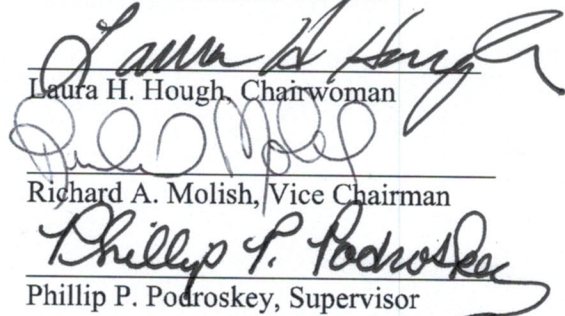 Laura H Hough
Laura H. Hough, Chairwoman
Richard A. Molish, Vice Chairman
Phillip P. Podroskey
Phillip P. Podroskey, Supervisor